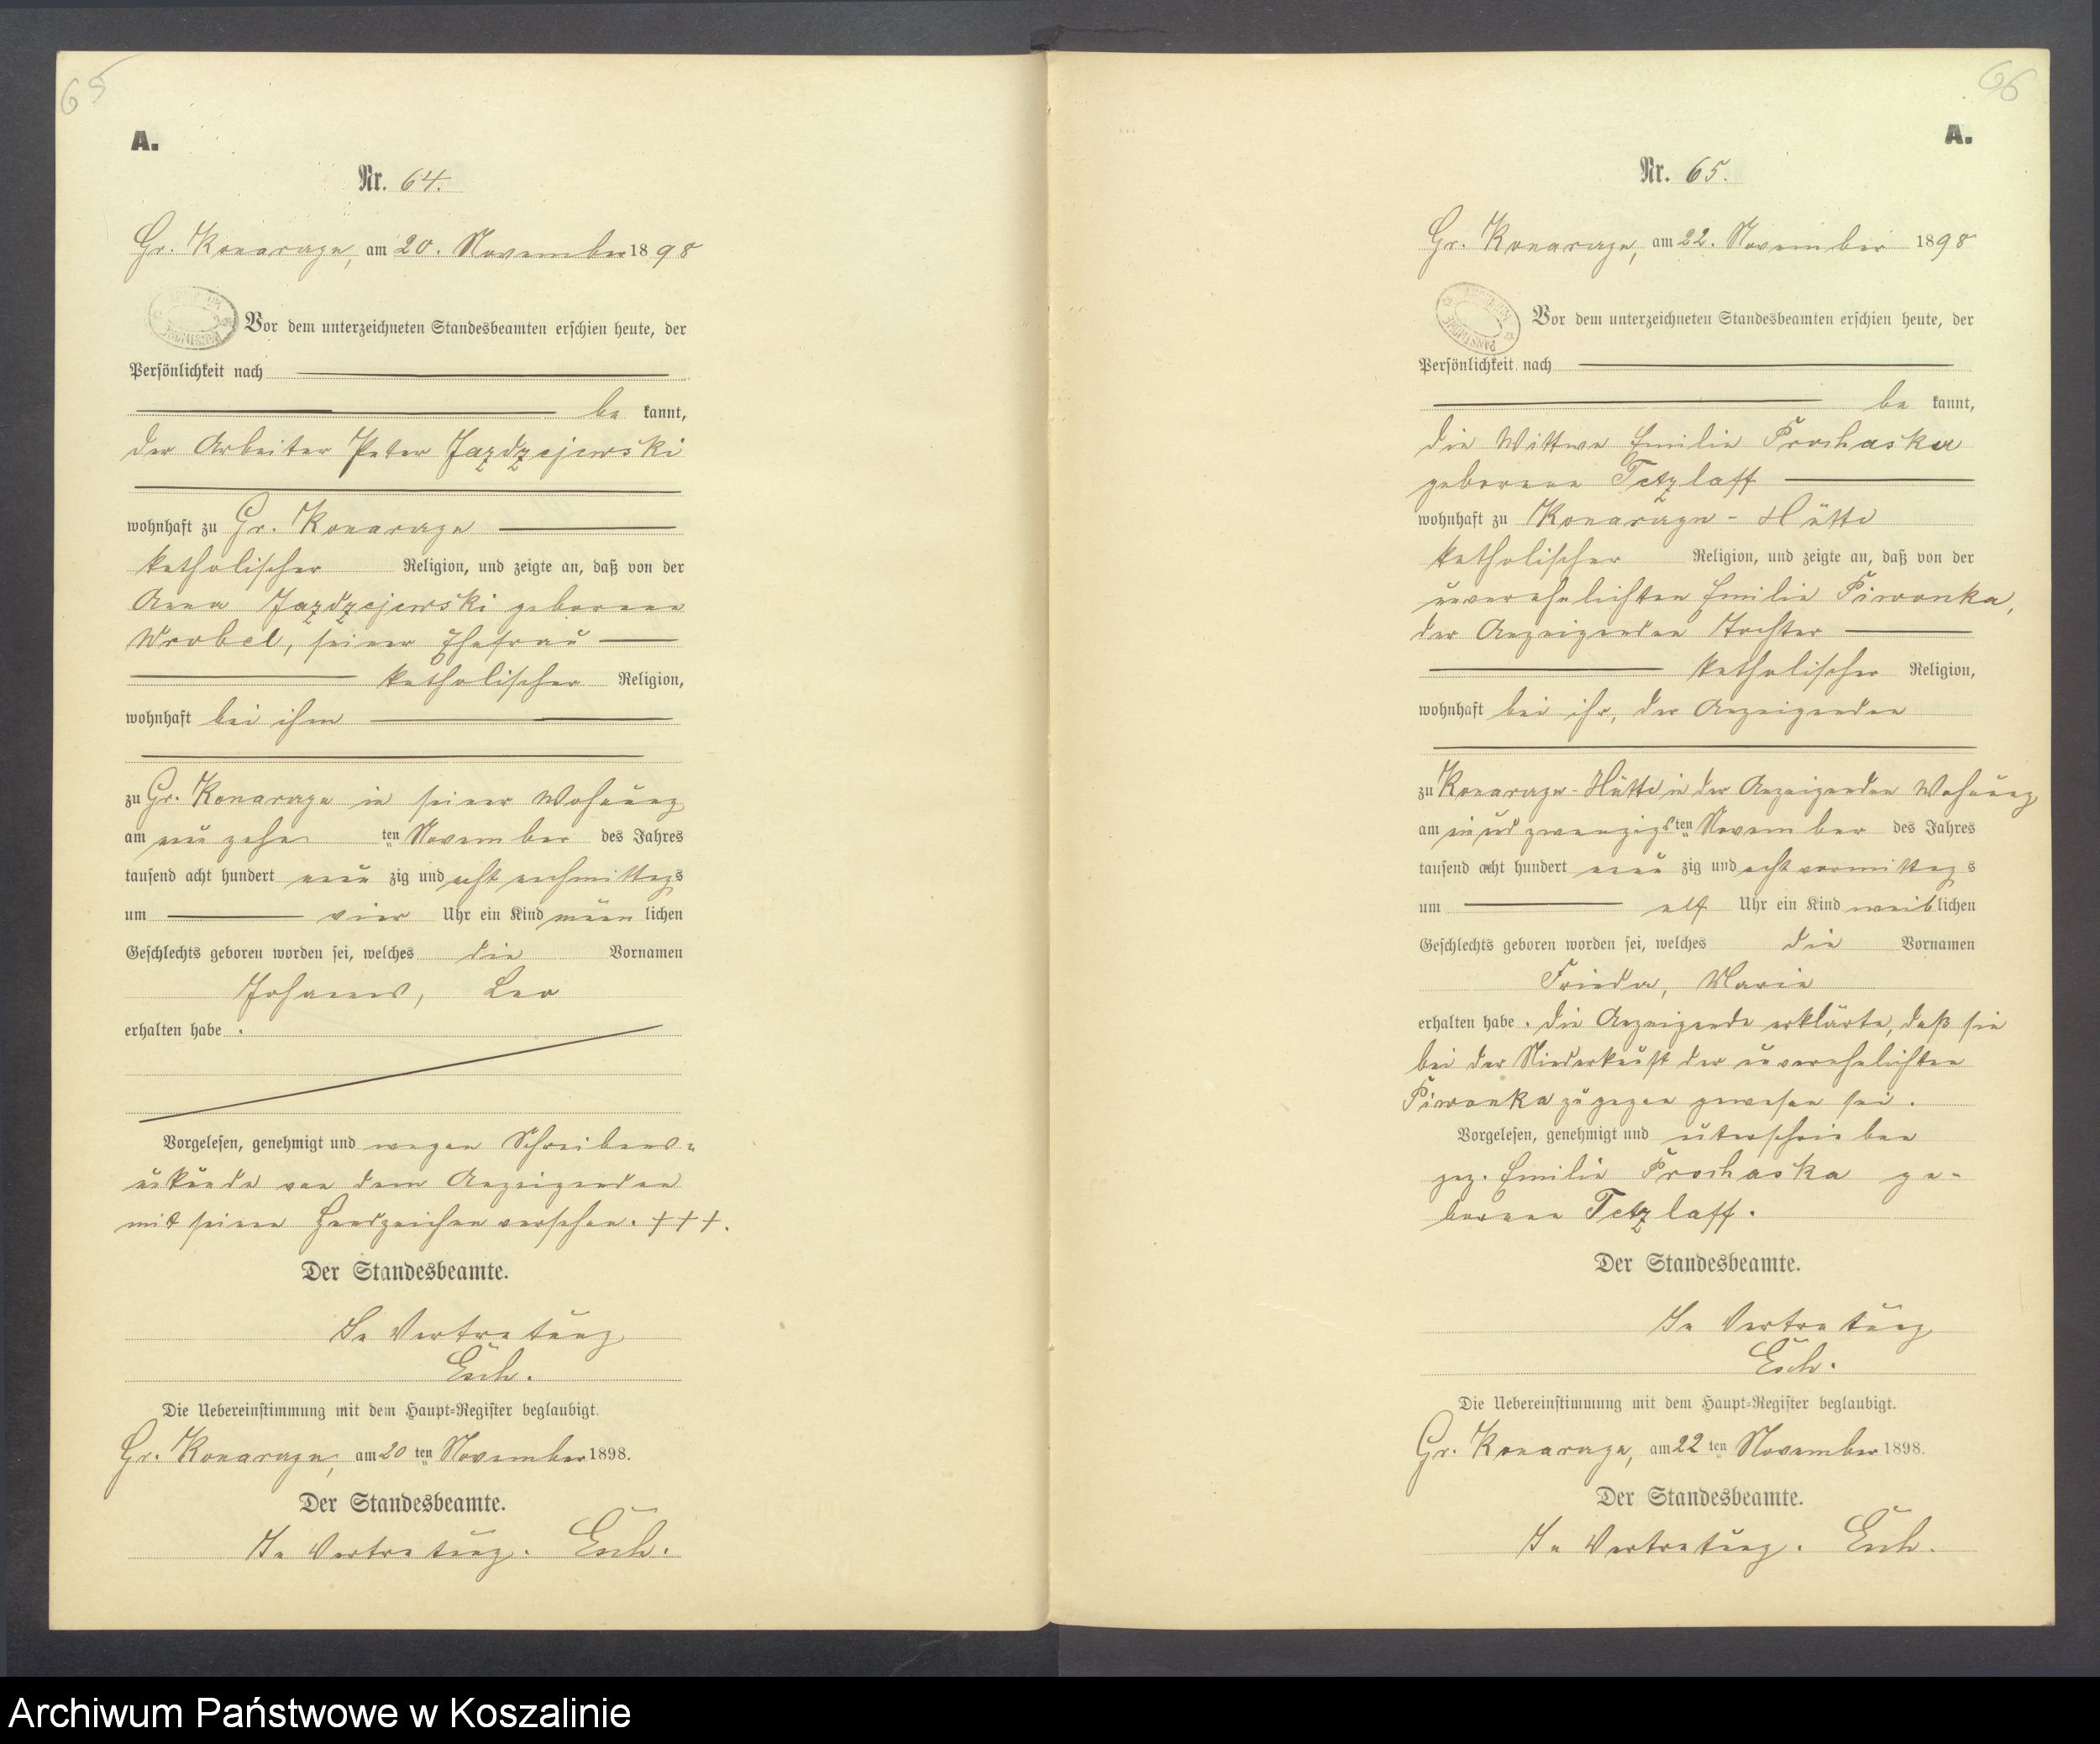 65
A.
Nr. 64.
Gr. Konarczyn, am 20. November 1898
Vor dem unterzeichneten Standesbeamten erschien heute, der
Persönlichkeit nach
be kannt,
der Arbeiter Peter Jazdzejewski
wohnhaft zu Gr. Konarczyn
katholischer Religion, und zeigte an, daß von der
Anna Jazdzejewski geborene
Wrobel, seiner Ehefrau
katholischer Religion,
wohnhaft bei ihm
zu Gr. Konarczyn in seiner Wohnung
am neunzehn ten November des Jahres
tausend acht hundert neun zig und acht nachmittags
um vier Uhr ein Kind männ lichen
Geschlechts geboren worden sei, welches die Vornamen
Johannes, Leo
erhalten habe.
Vorgelesen, genehmigt und wegen Schreibens-
unkunde von dem Anzeigenden
mit seinem Handzeichen versehen. +++.
Der Standesbeamte.
In Vertretung
Esch.
Die Uebereinstimmung mit dem Haupt-Register beglaubigt.
Gr. Konarczyn, am 20 ten November 1898.
Der Standesbeamte.
In Vertretung. Esch.
66
A.
Nr. 65.
Gr. Konarczyn, am 22. November 1898
Vor dem unterzeichneten Standesbeamten erschien heute, der
Persönlichkeit nach
be kannt,
die Wittwe Emilie Prochaska
geborene Tetzlaff
wohnhaft zu Konarczyn-Hütte
katholischer Religion, und zeigte an, daß von der
unverehelichten Emilie Piwonka,
der Anzeigenden Tochter
katholischer Religion,
wohnhaft bei ihr, der Anzeigenden
zu Konarczyn-Hütte in der Anzeigenden Wohnung
am ein und zwanzigsten November des Jahres
tausend acht hundert neun zig und acht vormittag s
um elf Uhr ein Kind weiblichen
Geschlechts geboren worden sei, welches die Vornamen
Frieda, Marie
erhalten habe. Die Anzeigende erklärte, daß sie
bei der Niederkunft der unverehelichten
Piwonka zugegen gewesen sei.
Vorgelesen, genehmigt und unterschrieben
gez. Emilie Prochaska ge-
borene Tetzlaff.
Der Standesbeamte.
In Vertretung
Esch.
Die Uebereinstimmung mit dem Haupt-Register beglaubigt.
Gr. Konarczyn, am 22 ten November 1898.
Der Standesbeamte.
In Vertretung. Esch.
Archiwum Państwowe w Koszalinie